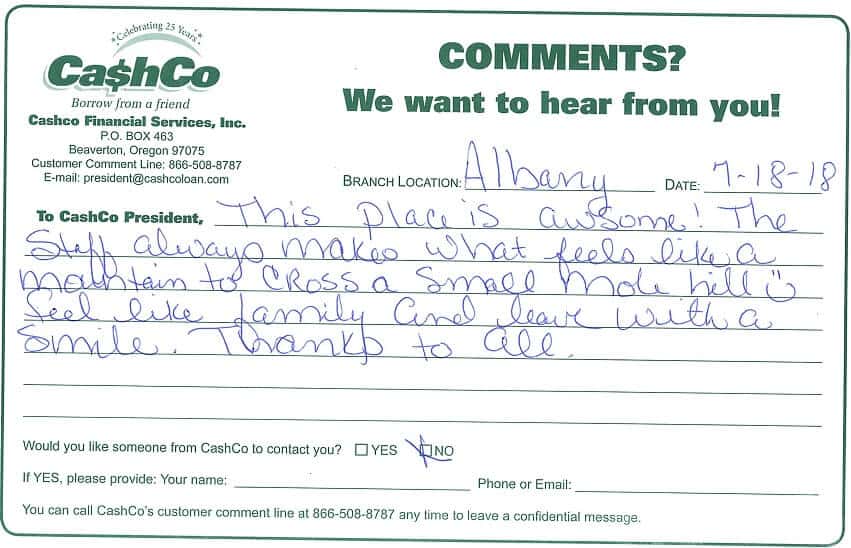 Celebrating 25 Years
Ca$hCo
Borrow from a friend
Cashco Financial Services, Inc.
P.O. BOX 463
Beaverton, Oregon 97075
Customer Comment Line: 866-508-8787
E-mail: president@cashcoloan.com
COMMENTS?
We want to hear from you!
BRANCH LOCATION: Albany DATE: 7-18-18
To CashCo President, This place is awsome! The
Staff always makes what feels like a
mountain to CROSS a Small Mole hill ☺
feel like family and leave with a
Smile. Thanks to all.
Would you like someone from CashCo to contact you? ☐ YES ☒ NO
If YES, please provide: Your name: Phone or Email:
You can call CashCo's customer comment line at 866-508-8787 any time to leave a confidential message.